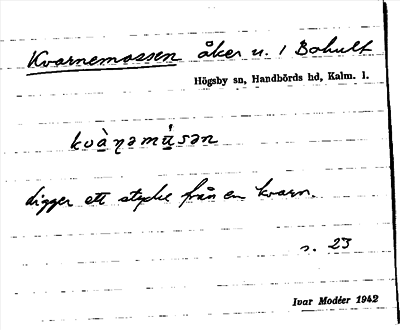 Kvarnemossen åker u. 1 Bohult
Högsby sn, Handbörds hd, Kalm. l.
kvàɳəmúsən
ligger ett stycke från en kvarn.
s. 23
Ivar Modéer 1942